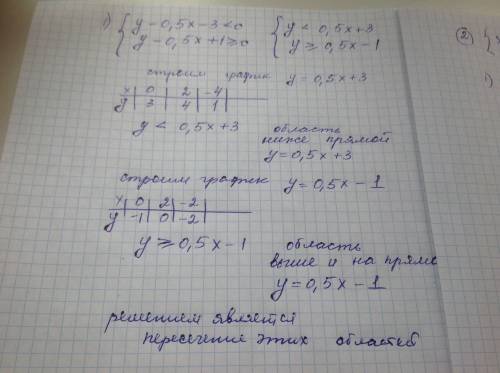 1) { y - 0,5x - 3 < 0 { y < 0,5x + 3
y - 0,5x + 1 ≥ 0 y ≥ 0,5x - 1
2) {
строим график y = 0,5x + 3
x | 0 | 2 | -4 |
y | 3 | 4 | 1 |
1)
y < 0,5x + 3 область
ниже прямой
y = 0,5x + 3
строим график y = 0,5x - 1
x | 0 | 2 | -2 |
y | -1 | 0 | -2 |
y ≥ 0,5x - 1 область
выше и на прямо
y = 0,5x - 1
решением является
пересечение этих областей